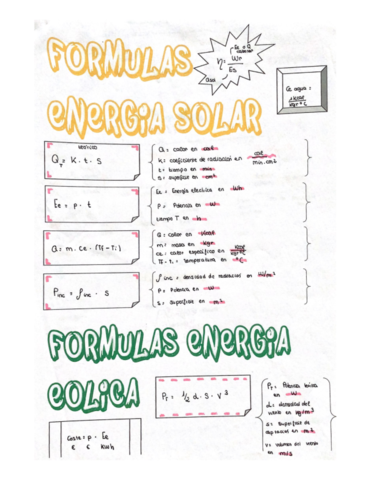 FORMULAS
ENERGIA SOLAR
Ee = Q
η = Wr
Es
Ce agua =
1 kcal
kgr ºC
teórico
Q = K · t · S
T
Q = calor en cal
K = coeficiente de radiación en cal
min · cm²
t = tiempo en min
s = superficie en cm²
Ee = p · t
Ee = Energía eléctrica en Wh
P = Potencia en W
tiempo T. en h
Q = m · ce · (Tf - Ti)
Q = calor en kcal
m = masa en kgr
ce = calor específico en kcal
kgr ºC
Tf - Ti = temperatura en ºC
Pinc = ρinc · S
ρinc = densidad de radiación en W/m²
P = Potencia en W
S = superficie en m²
FORMULAS ENERGIA
EOLICA
PT = 1/2 d · S · v³
PT = Potencia teórica
en W
d = densidad del
viento en kg/m³
s = superficie de
captación en m²
en m/s
Coste = p · Ee
€ € kWh